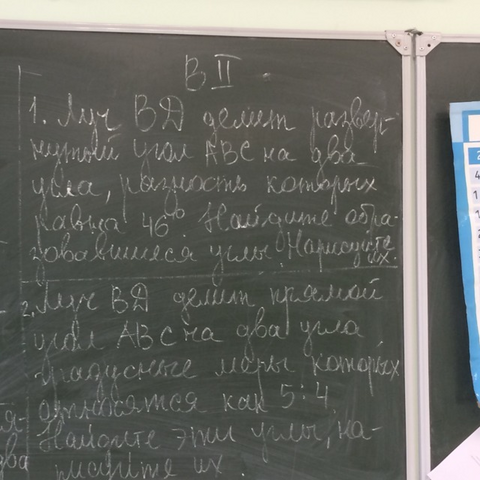 В II
1. Луч ВД делит развер-
нутый угол АВС на два
угла, разность которых
равна 46° Найдите обра-
зовавшиеся углы. Нарисуйте
их.
2. Луч ВД делит прямой
угол АВС на два угла
градусные меры которых
относятся как 5:4
Найдите эти углы, на-
рисуйте их